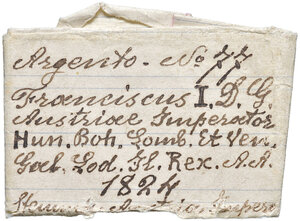 Argento. No 77
Franciscus I. D. G.
Austriae Imperator
Hun. Boh. Lomb. Et Ven.
Gal. Lod. Il. Rex. A.A.
1824